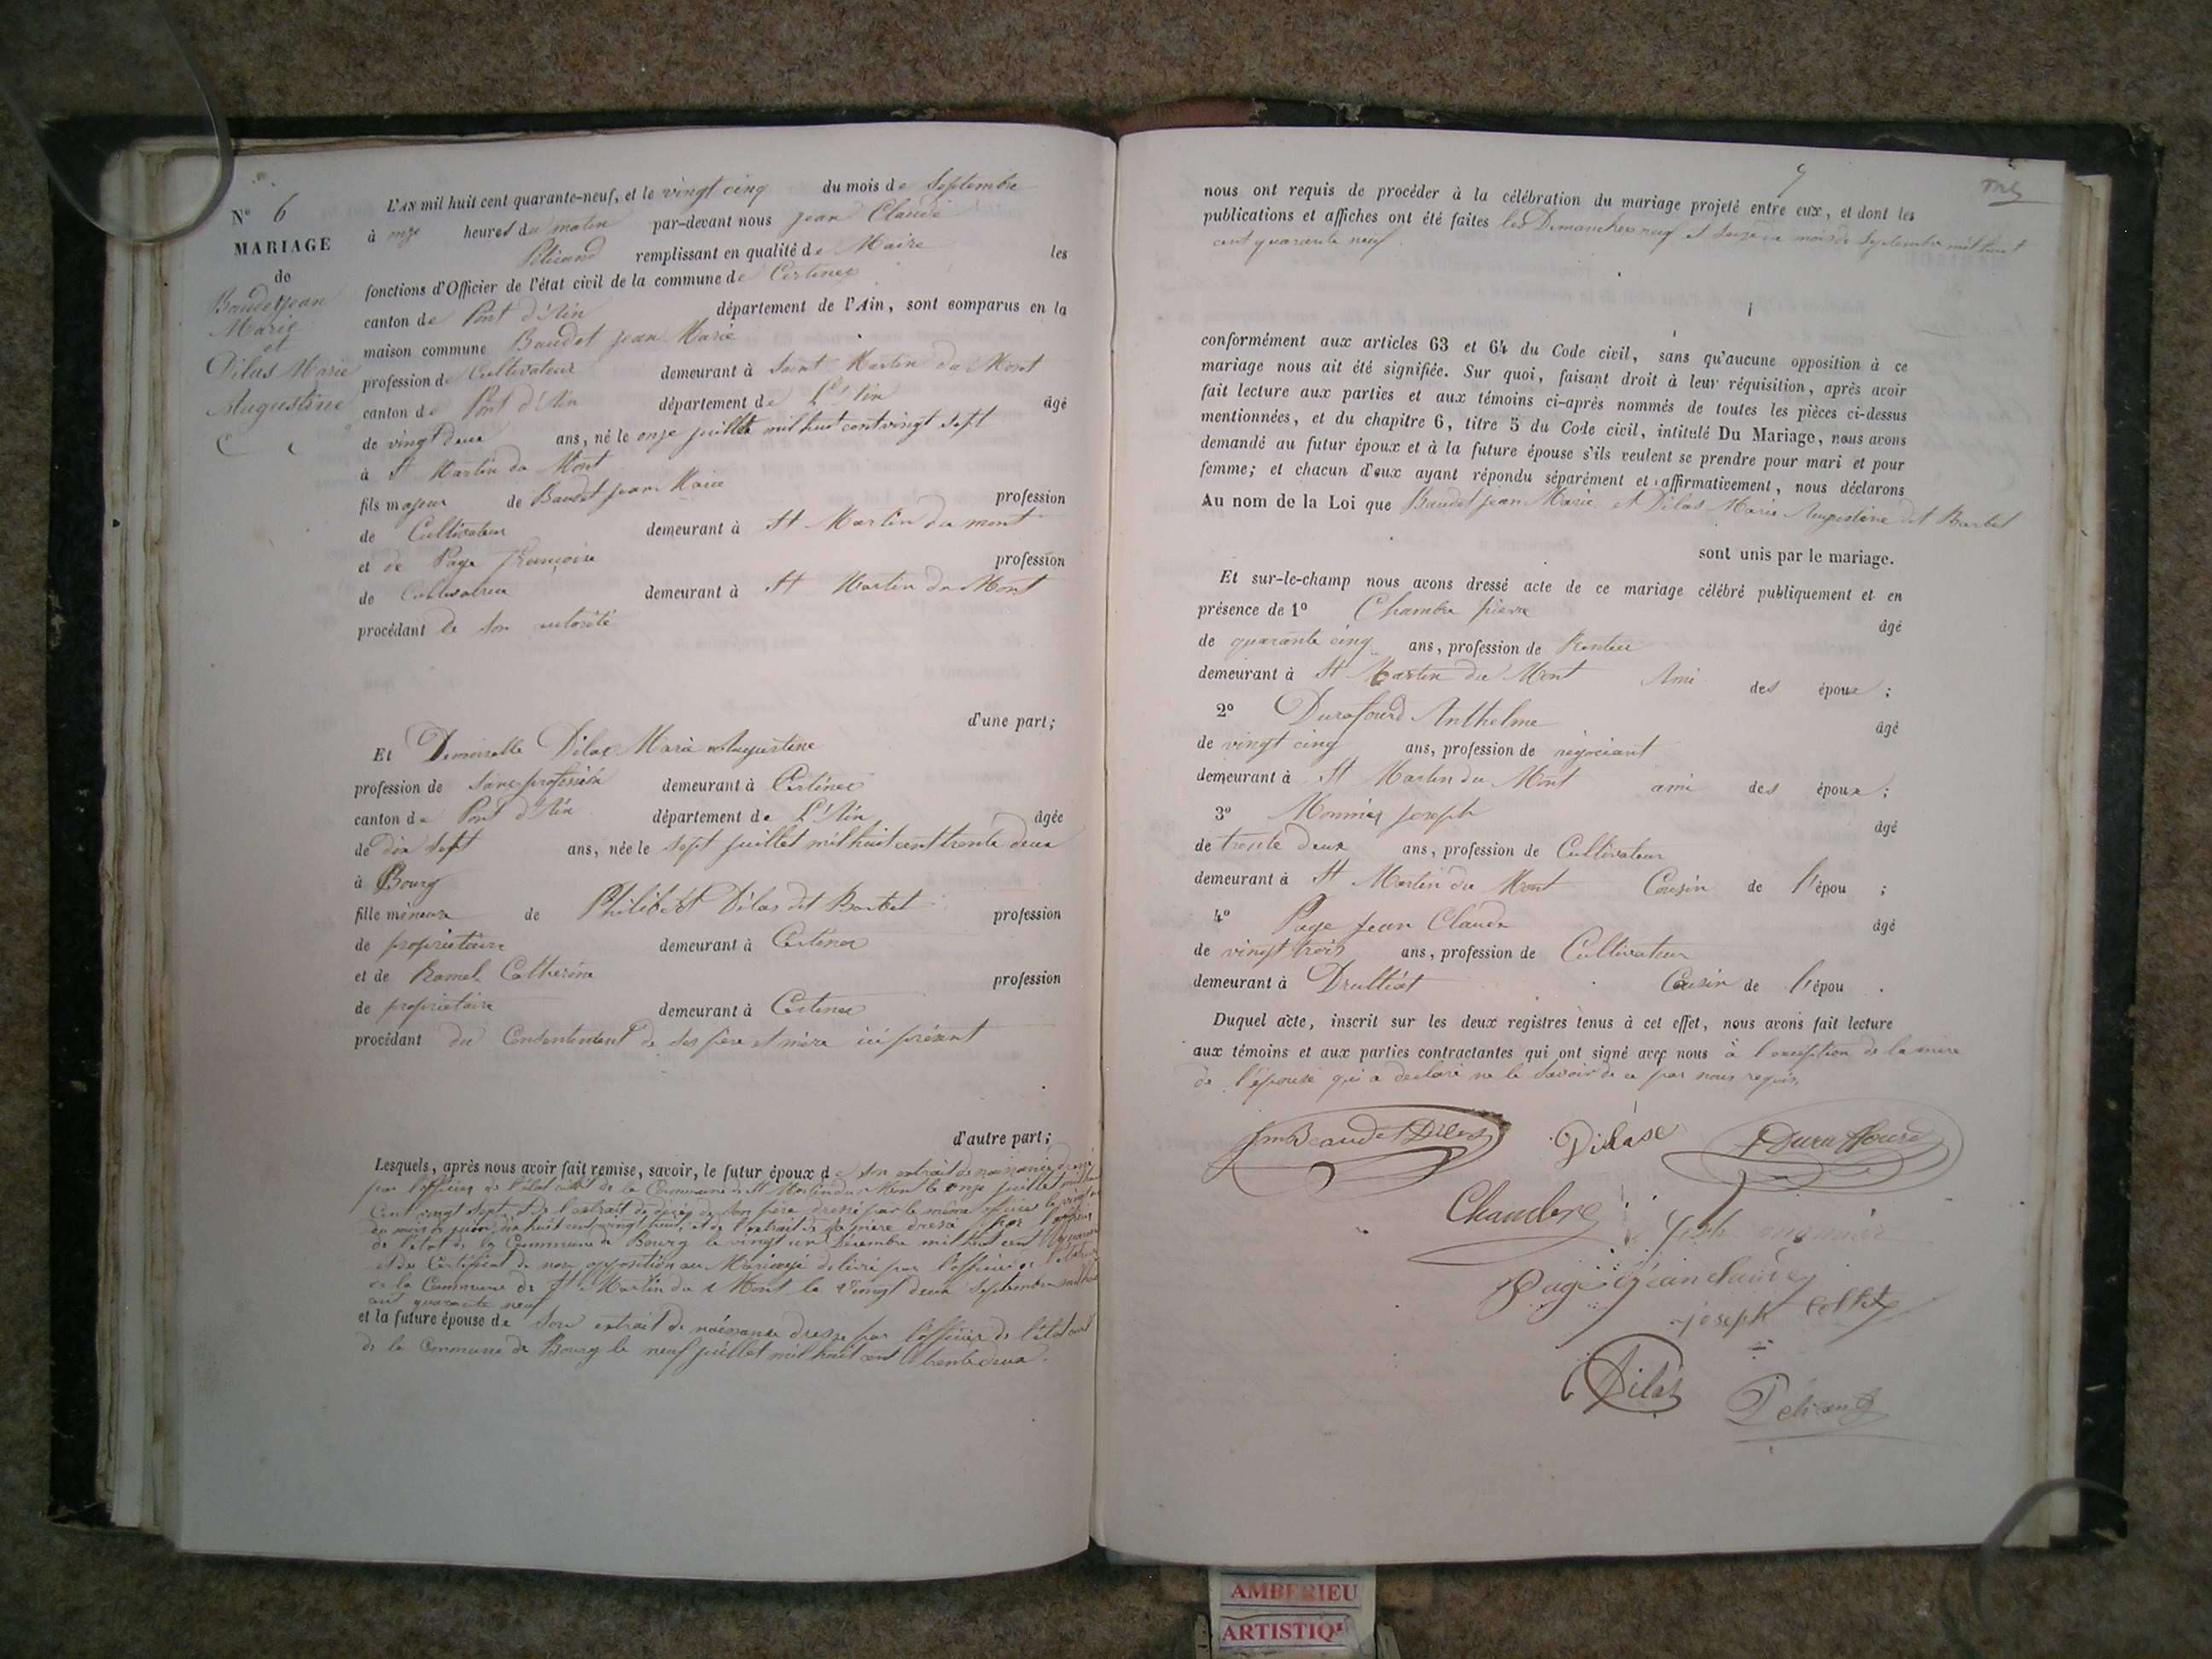 N° 6
MARIAGE
de
Baudet Jean
Marie
et
Dilas Marie
Augustine
L'AN mil huit cent quarante-neuf, et le vingt cinq du mois de Septembre
à onze heures du matin par-devant nous Jean Claude
Pélicand remplissant en qualité de Maire les
fonctions d'Officier de l'état civil de la commune de Certines
canton de Pont d'Ain département de l'Ain, sont comparus en la
maison commune Baudet Jean Marie
profession de Cultivateur demeurant à Saint Martin du Mont
canton de Pont d'Ain département de L'Ain âgé
de vingt deux ans, né le onze juillet mil huit cent vingt sept
à St Martin du Mont
fils majeur de Baudet Jean Marie profession
de Cultivateur demeurant à St Martin du mont
et de Page françoise profession
de Cultivatrice demeurant à St Martin du Mont
procédant de son autorité
d'une part;
Et Demoiselle Dilas Marie Augustine
profession de Sans profession demeurant à Certines
canton de Pont d'Ain département de L'Ain âgée
de dix sept ans, née le sept juillet mil huit cent trente deux
à Bourg
fille mineure de Philibert Dilas dit Barbet profession
de propriétaire demeurant à Certines
et de Ramel Catherine profession
de propriétaire demeurant à Certines
procédant du Consentement de ses père et mère ici présent
d'autre part;
Lesquels, après nous avoir fait remise, savoir, le futur époux de son extrait de naissance dressé
par l'officier de l'état civil de la Commune de St Martin du Mont le onze juillet mil huit
Cent vingt sept, et de l'extrait de décès de son père dressé par le même officier le vingt
du mois de juin dix huit cent vingt huit, et de l'extrait de sa mère dressé par l'officier
de l'état de la Commune de Bourg le vingt un Décembre mil huit cent quarante
et du Certificat de non opposition au Mariage délivré par l'officier de l'état
de la Commune de St Martin du Mont le vingt deux Septembre mil huit
cent quarante neuf
et la future épouse de son extrait de naissance dressé par l'officier de l'état civil
de la Commune de Bourg le neuf juillet mil huit cent trente deux.
9
nous ont requis de procéder à la célébration du mariage projeté entre eux, et dont les
publications et affiches ont été faites les Dimanches neuf et seize du mois de Septembre mil huit
cent quarante neuf.
conformément aux articles 63 et 64 du Code civil, sans qu'aucune opposition à ce
mariage nous ait été signifiée. Sur quoi, faisant droit à leur réquisition, après avoir
fait lecture aux parties et aux témoins ci-après nommés de toutes les pièces ci-dessus
mentionnées, et du chapitre 6, titre 5 du Code civil, intitulé Du Mariage, nous avons
demandé au futur époux et à la future épouse s'ils veulent se prendre pour mari et pour
femme; et chacun d'eux ayant répondu séparément et affirmativement, nous déclarons
Au nom de la Loi que Baudet Jean Marie et Dilas Marie Augustine dit Barbet
sont unis par le mariage.
Et sur-le-champ nous avons dressé acte de ce mariage célébré publiquement et en
présence de 1° Chambre pierre âgé
de quarante cinq ans, profession de Rentier
demeurant à St Martin du Mont Ami des époux ;
2° Durafourd Anthelme âgé
de vingt cinq ans, profession de négociant
demeurant à St Martin du Mont ami des époux ;
3° Monnier Joseph âgé
de trente deux ans, profession de Cultivateur
demeurant à St Martin du Mont Cousin de l'épou ;
4° Page Jean Claude âgé
de vingt trois ans, profession de Cultivateur
demeurant à Druilliat Cousin de l'épou .
Duquel acte, inscrit sur les deux registres tenus à cet effet, nous avons fait lecture
aux témoins et aux parties contractantes qui ont signé avec nous à l'exception de la mère
de l'épouse qui a déclaré ne le savoir de ce par nous requis,
jm Beaudet Dilas Dilase Duraffourd
Chambre
Page Jean Claude
joseph Collet
Dilas Pélicand
AMBERIEU
ARTISTIQ